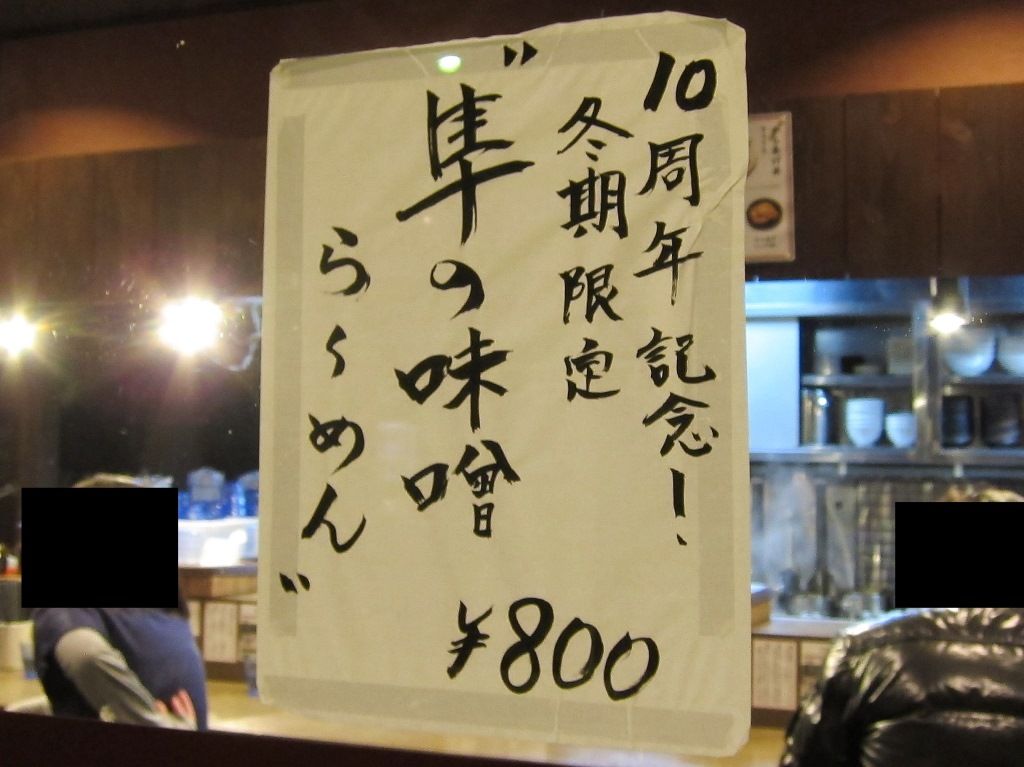 10周年記念!
冬期限定
"隼の味噌
らーめん"
¥800